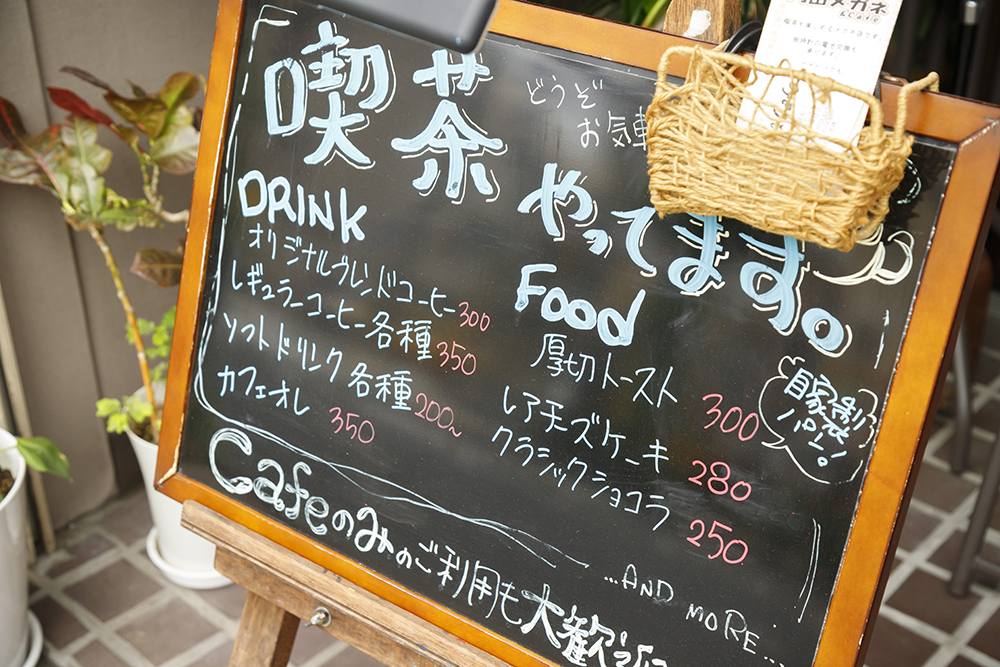 メガネ
& Cafe
喫茶
どうぞ
お気軽
やってます。
DRINK
オリジナルブレンドコーヒー 300
レギュラーコーヒー各種 350
ソフトドリンク各種 200~
カフェオレ 350
Food
厚切トースト 300
レアチーズケーキ 280
クラシックショコラ 250
自家製
パン!
...AND MORE...
Cafeのみのご利用も大歓迎